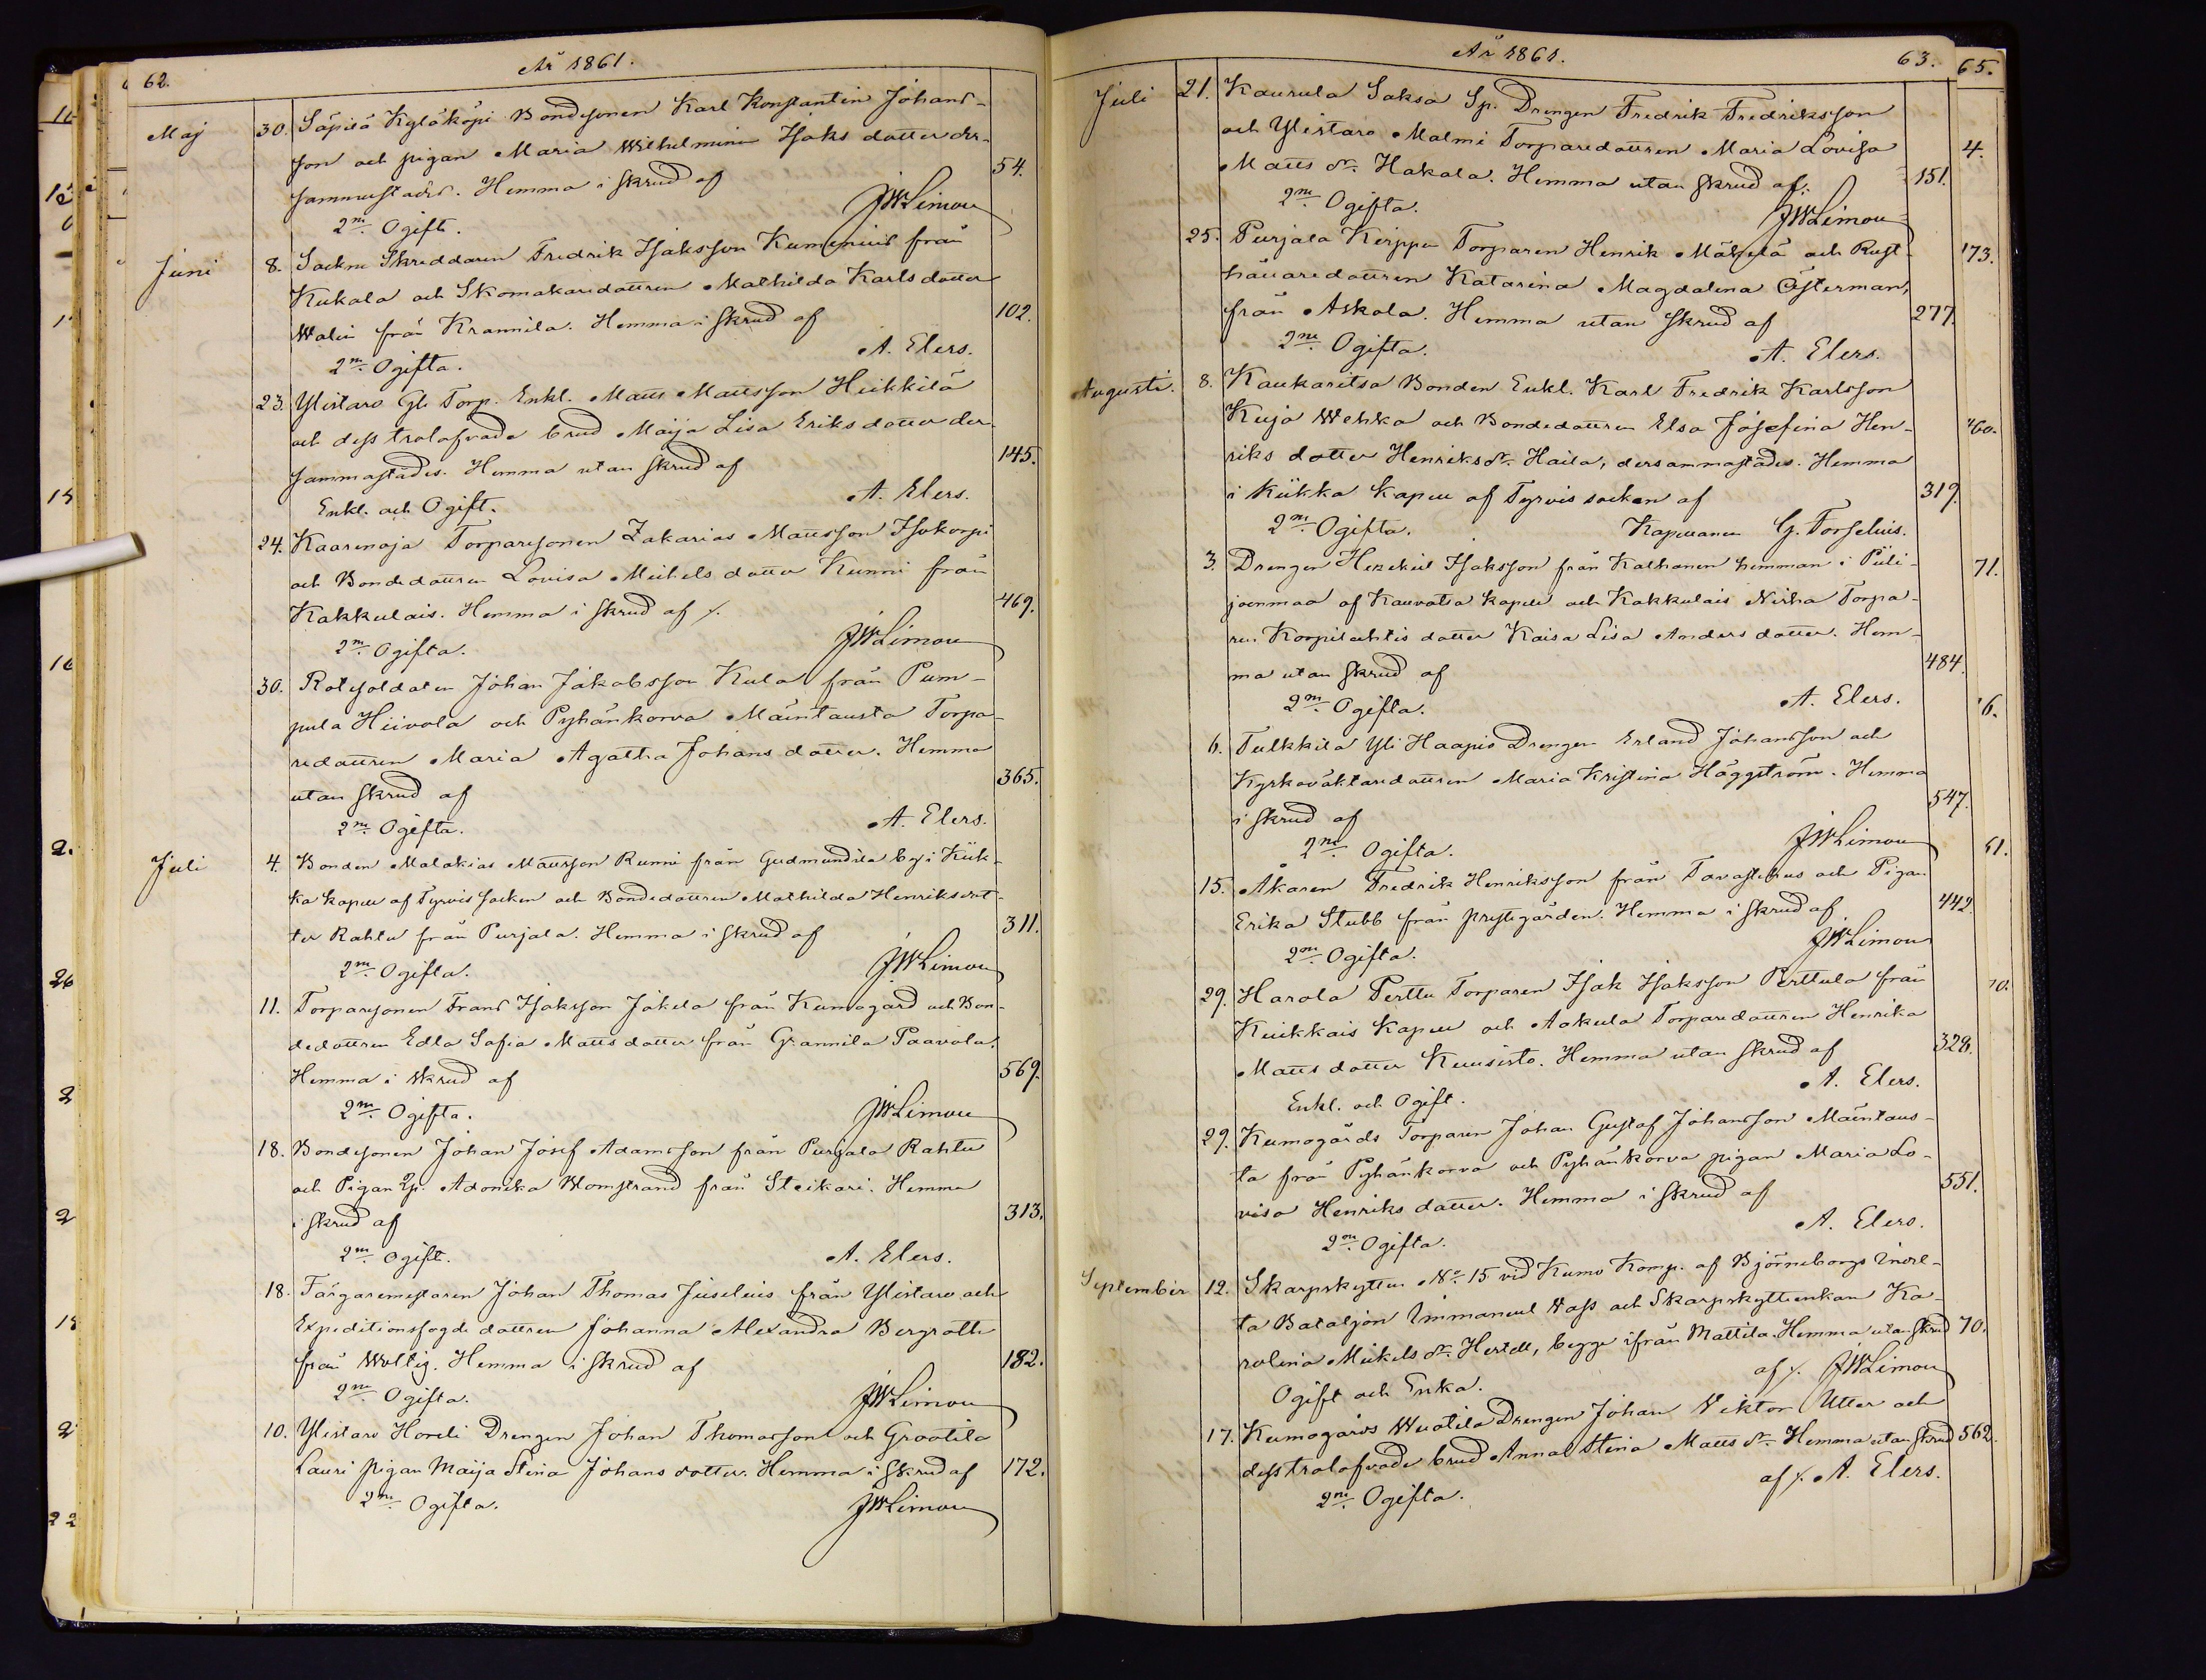 62.
År 1861.
Maj
30. Säpilä Kyläköpi Bondesonen Karl Konstantin Johans-
son och pigan Maria Wilhelmina Isaks dotter der-
sammastädes. Hemma i skrud af
54.
2ne Ogift.
JWLimon
Juni
8. Sockne Skreddaren Fredrik Isaksson Kumenius från
Kukola och Skomakaredottren Mathilda Karls dotter
Walin från Krannila. Hemma i skrud af
102.
2ne Ogifta.
A. Elers.
23. Ylistaro Gl. Torp. Enkl. Matts Mattsson Heikkilä
och dess trolofvade brud Maija Lisa Eriks dotter der
sammastädes. Hemma utan skrud af
145.
Enkl. och Ogift.
A. Elers.
24. Kaarenoja Torparesonen Zakarias Mattsson Isokorpi
och Bondedottren Lovisa Michels dotter Kunni från
Kakkulais. Hemma i skrud af ⁒.
469.
2ne Ogifta.
JWLimon
30. Rotesoldaten Johan Jakobsson Kula från Pum-
pula Hiivola och Pyhänkorva Mäintausta Torpa-
redottren Maria Agatha Johans dotter. Hemma
utan skrud af
365.
2ne Ogifta.
A. Elers.
Juli
4. Bonden Malakias Mattsson Runni från Gudmundila by i Kiik-
ka kapell af Tyrvis socken och Bondedottren Mathilda Henriks dot-
ter Rahtu från Purjala. Hemma i skrud af
311.
2ne Ogifta.
JWLimon
11. Torparesonen Frans Isaksson Jäkelä från Kumogård och Bon-
dedottren Edla Sofia Matts dotter från Grannila Paavola.
Hemma i skrud af
569.
2ne Ogifta.
JWLimon
18. Bondesonen Johan Josef Adamsson från Purjala Rahtu
och Pigan Sp. Adonika Blomstrand från Steikari. Hemma
i skrud af
313.
2ne Ogift.
A. Elers.
18. Färgaremestaren Johan Thomas Juselius från Ylistaro och
Expeditionsfogde dottren Johanna Alexandra Bergroth
från Woltig. Hemma i skrud af
182.
2ne Ogifta.
JWLimon
10. Ylistaro Horeli Drengen Johan Thomasson och Grootila
Lauri pigan Maija Stina Johans dotter. Hemma i skrud af
172.
2ne Ogifta.
JWLimon
År 1861.
63.
65.
Juli
21. Kaurula Saksa Sp. Drengen Fredrik Fredriksson
och Ylistaro Malmi Torparedottren Maria Lovisa
Matts dr. Hakala. Hemma utan skrud af.
151.
2ne Ogifta.
JWLimon
25. Purjala Kirppu Torparen Henrik Mäkelä och Rust-
hållaredottren Katarina Magdalena Österman,
från Askola. Hemma utan skrud af
277.
2ne Ogifta.
A. Elers.
Augusti.
8. Kaukaritsa Bonden Enkl. Karl Fredrik Karlsson
Kuja Wehka och Bondedottren Elsa Josefina Hen-
riks dotter Henriks dr. Haila, dersammastädes. Hemma
i Kiikka kapell af Tyrvis socken af
319.
2ne Ogifta.
Kapellanen G. Forselius.
3. Drengen Hezekiel Isaksson från Kalhanen hemman i Piili-
joenmaa af Kauvatsa kapell och Kakkulais Nirha Torpa-
ren Korpilahtis dotter Kaisa Lisa Anders dotter. Hem-
ma utan skrud af
484.
2ne Ogifta.
A. Elers.
6. Tulkkila Yli Haapio Drengen Erland Johansson och
Kyrkoväktaredottren Maria Kristina Häggström. Hemma
i skrud af
547.
2ne Ogifta.
JWLimon
15. Åkaren Fredrik Henriksson från Tavastehus och Pigan
Erika Stubb från prestgården. Hemma i skrud af
442.
2ne Ogifta.
JWLimon
29. Harola Perttu Torparen Isak Isaksson Perttula från
Kiukkais Kapell och Askula Torparedottren Henrika
Matts dotter Kuusisto. Hemma utan skrud af
328.
Enkl. och Ogift.
A. Elers.
29. Kumogårds Torparen Johan Gustaf Johansson Mäintaus-
ta från Pyhänkorva och Pyhänkorva pigan Maria Lo-
visa Henriks dotter. Hemma i skrud af
551.
2ne Ogifta.
A. Elers.
September
12. Skarpskytten No. 15 vid Kumo Komp. af Björneborgs Indel-
ta Bataljon Immanuel Vass och Skarpskytteenkan Ka-
rolina Mickels dr. Hertell, begge ifrån Mattila. Hemma utan skrud
70.
af ⁒. JWLimon
Ogift och Enka.
17. Kumogårds Wuotila Drengen Johan Viktor Utter och
dess trolofvade brud Anna Stina Matts dr. Hemma utan skrud
562.
af ⁒. A. Elers.
2ne Ogifta.
4.
173.
71.
61.